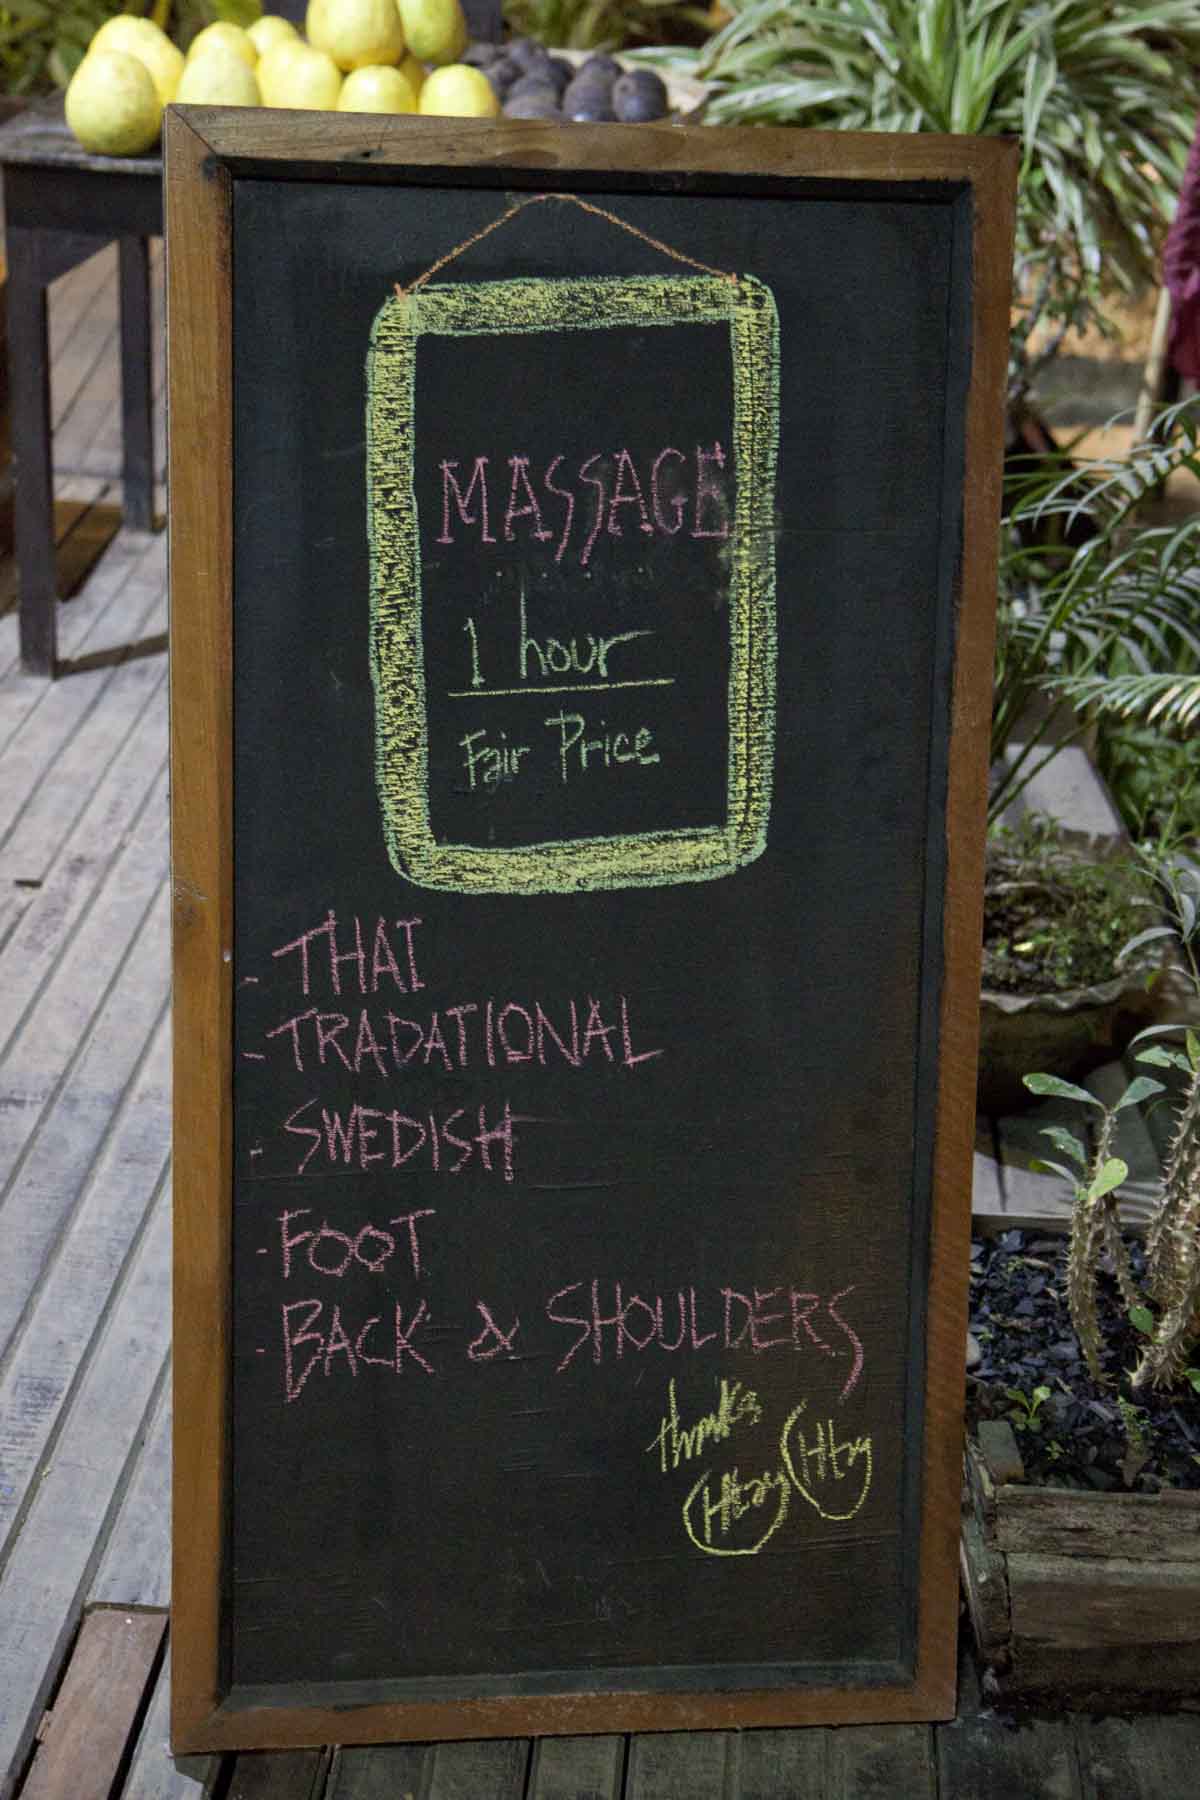 MASSAGE
1 hour
Fair Price
- THAI
- TRADATIONAL
- SWEDISH
- FOOT
- BACK & SHOULDERS
thanks